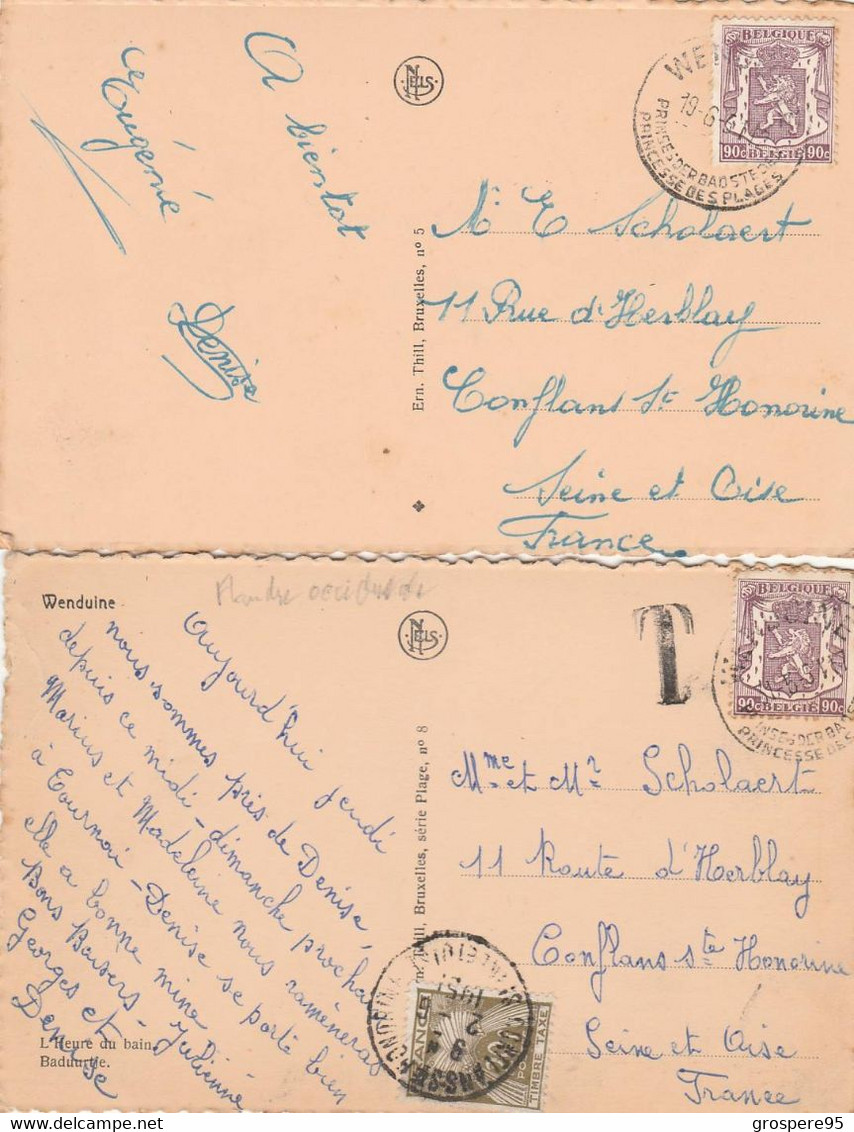 A bientot
Eugénie
Denise
NELS
Ern. Thill, Bruxelles, nº 5
BELGIQUE
90c BELGIE 90c
WE
19-6-
PRINSES DER BADSTEDEN
PRINCESSE DES PLAGES
Mr E Scholaert
11 Rue d'Herblay
Conflans St Honorine
Seine et Oise
France
Wenduine
Flandre occidentale
Aujourd'hui jeudi
nous sommes près de Denise,
depuis ce midi - dimanche prochain
Marius et Madeleine nous ramèneras
à Tournai - Denise se porte bien
elle a bonne mine
Bons Baisers - Julienne
Georges et
Denise
L'Heure du bain.
Baduurtje.
NELS
Thill, Bruxelles, série Plage, nº 8
T
BELGIQUE
90c BELGIE 90c
PRINCESSE DES
Mme et Mr Scholaert
11 Route d'Herblay
Conflans ste Honorine
Seine et Oise
France
TIMBRE TAXE
1951
grospere95